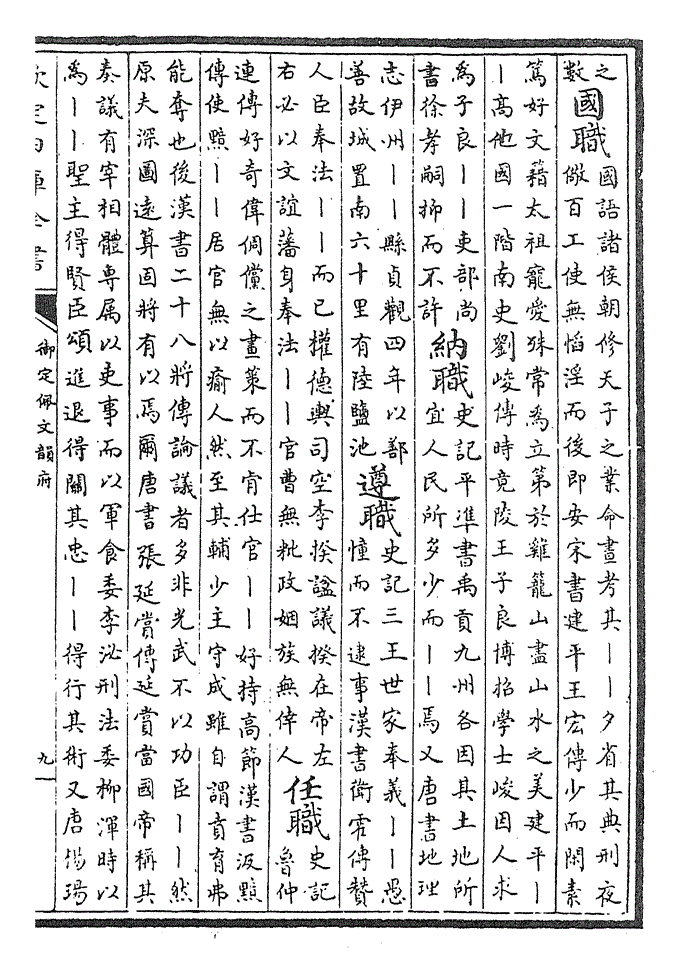 之
數
國職
國語諸侯朝修天子之業命晝考其丨丨夕省其典刑夜
儆百工使無慆淫而後即安宋書建平王宏傳少而閑素
篤好文籍太祖寵愛殊常為立第於雞籠山盡山水之美建平丨
丨高他國一階南史劉峻傳時竟陵王子良博招學士峻因人求
為子良丨丨吏部尚
書徐孝嗣抑而不許
納職
史記平準書禹貢九州各因其土地所
宜人民所多少而丨丨焉又唐書地理
志伊州丨丨縣貞觀四年以鄯
善故城置南六十里有陸鹽池
遵職
史記三王世家奉義丨丨愚
憧而不逮事漢書衛霍傳贊
人臣奉法丨丨而已權德輿司空李揆諡議揆在帝左
右必以文誼藩身奉法丨丨官曹無粃政姻族無倖人
任職
史記
魯仲
連傳好奇偉倜儻之畫策而不肯仕官丨丨好持高節漢書汲黯
傳使黯丨丨居官無以瘉人然至其輔少主守成雖自謂賁育弗
能奪也後漢書二十八將傳論議者多非光武不以功臣丨丨然
原夫深圖遠算固將有以焉爾唐書張延賞傳延賞當國帝稱其
奏議有宰相體專属以吏事而以軍食委李泌刑法委柳渾時以
為丨丨聖主得賢臣頌進退得關其忠丨丨得行其術又唐楊瑒
欽定四庫全書
御定佩文韻府
九